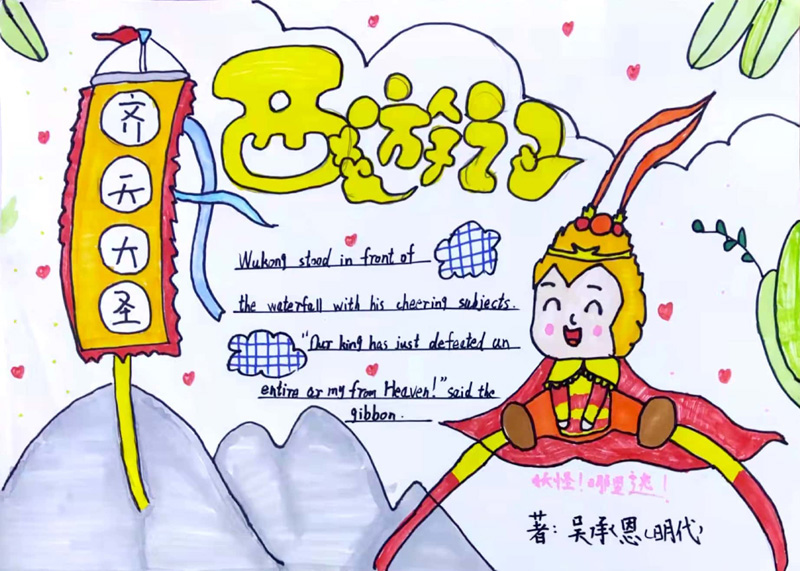 西游记
齐
天
大
圣
Wukong stood in front of
the waterfall with his cheering subjects.
"Our king has just defeated an
entire army from Heaven!" said the
gibbon.
妖怪！哪里逃！
著：吴承恩（明代）